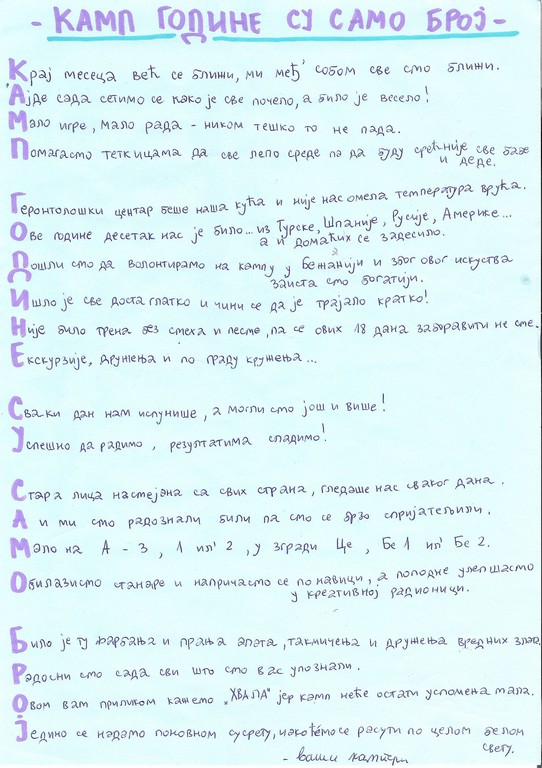 - КАМП ГОДИНЕ СУ САМО БРОЈ -
Крај месеца већ се ближи, ми међ' собом све смо ближи.
Ајде сада сетимо се како је све почело, а било је весело!
Мало игре, мало рада - ником тешко то не пада.
Помагасмо теткицама да све лепо среде па да буду срећније све бабе
и деде.
Геронтолошки центар беше наша кућа и није нас омела температура врућа.
Ове године десетак нас је било... из Турске, Шпаније, Русије, Америке...
а и домаћих се задесило.
Дошли смо да волонтирамо на кампу у Бежанији и због овог искуства
заиста смо богатији.
Ишло је све доста глатко и чини се да је трајало кратко!
Није било трена без смеха и песме, па се ових 18 дана заборавити не сме.
Екскурзије, дружења и по граду кружења...
Сваки дан нам испунише, а могли смо још и више!
Успешно да радимо, резултатима сладимо!
Стара лица насмејана са свих страна, гледаше нас сваког дана.
А и ми смо радознали били па смо се брзо спријатељили.
Мало на А - 3, 1 ил' 2, у згради Це, Бе 1 ил' Бе 2.
Обилазисмо станаре и напричасмо се по навици, а поподне улепшасмо
у креативној радионици.
Било је ту фарбања и прања алата, такмичења и дружења вредних злата
Радосни смо сада сви што смо вас упознали.
Овом вам приликом кажемо „ХВАЛА" јер камп неће остати успомена мала.
Једино се надамо поновном сусрету, иако ћемо се расути по целом белом
свету.
- ваши кампери